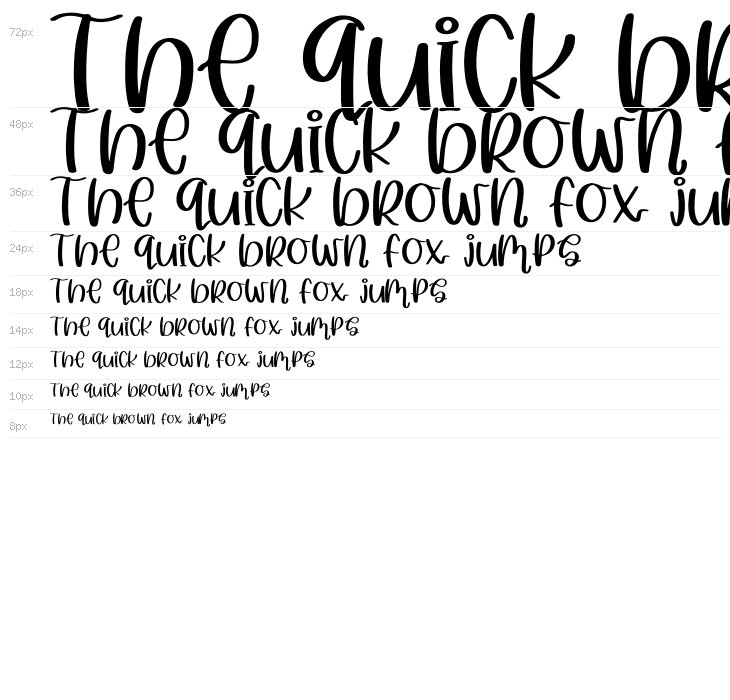 72px The quick br
48px The quick brown f
36px The quick brown fox jum
24px The quick brown fox jumps
18px The quick brown fox jumps
14px The quick brown fox jumps
12px The quick brown fox jumps
10px The quick brown fox jumps
8px The quick brown fox jumps